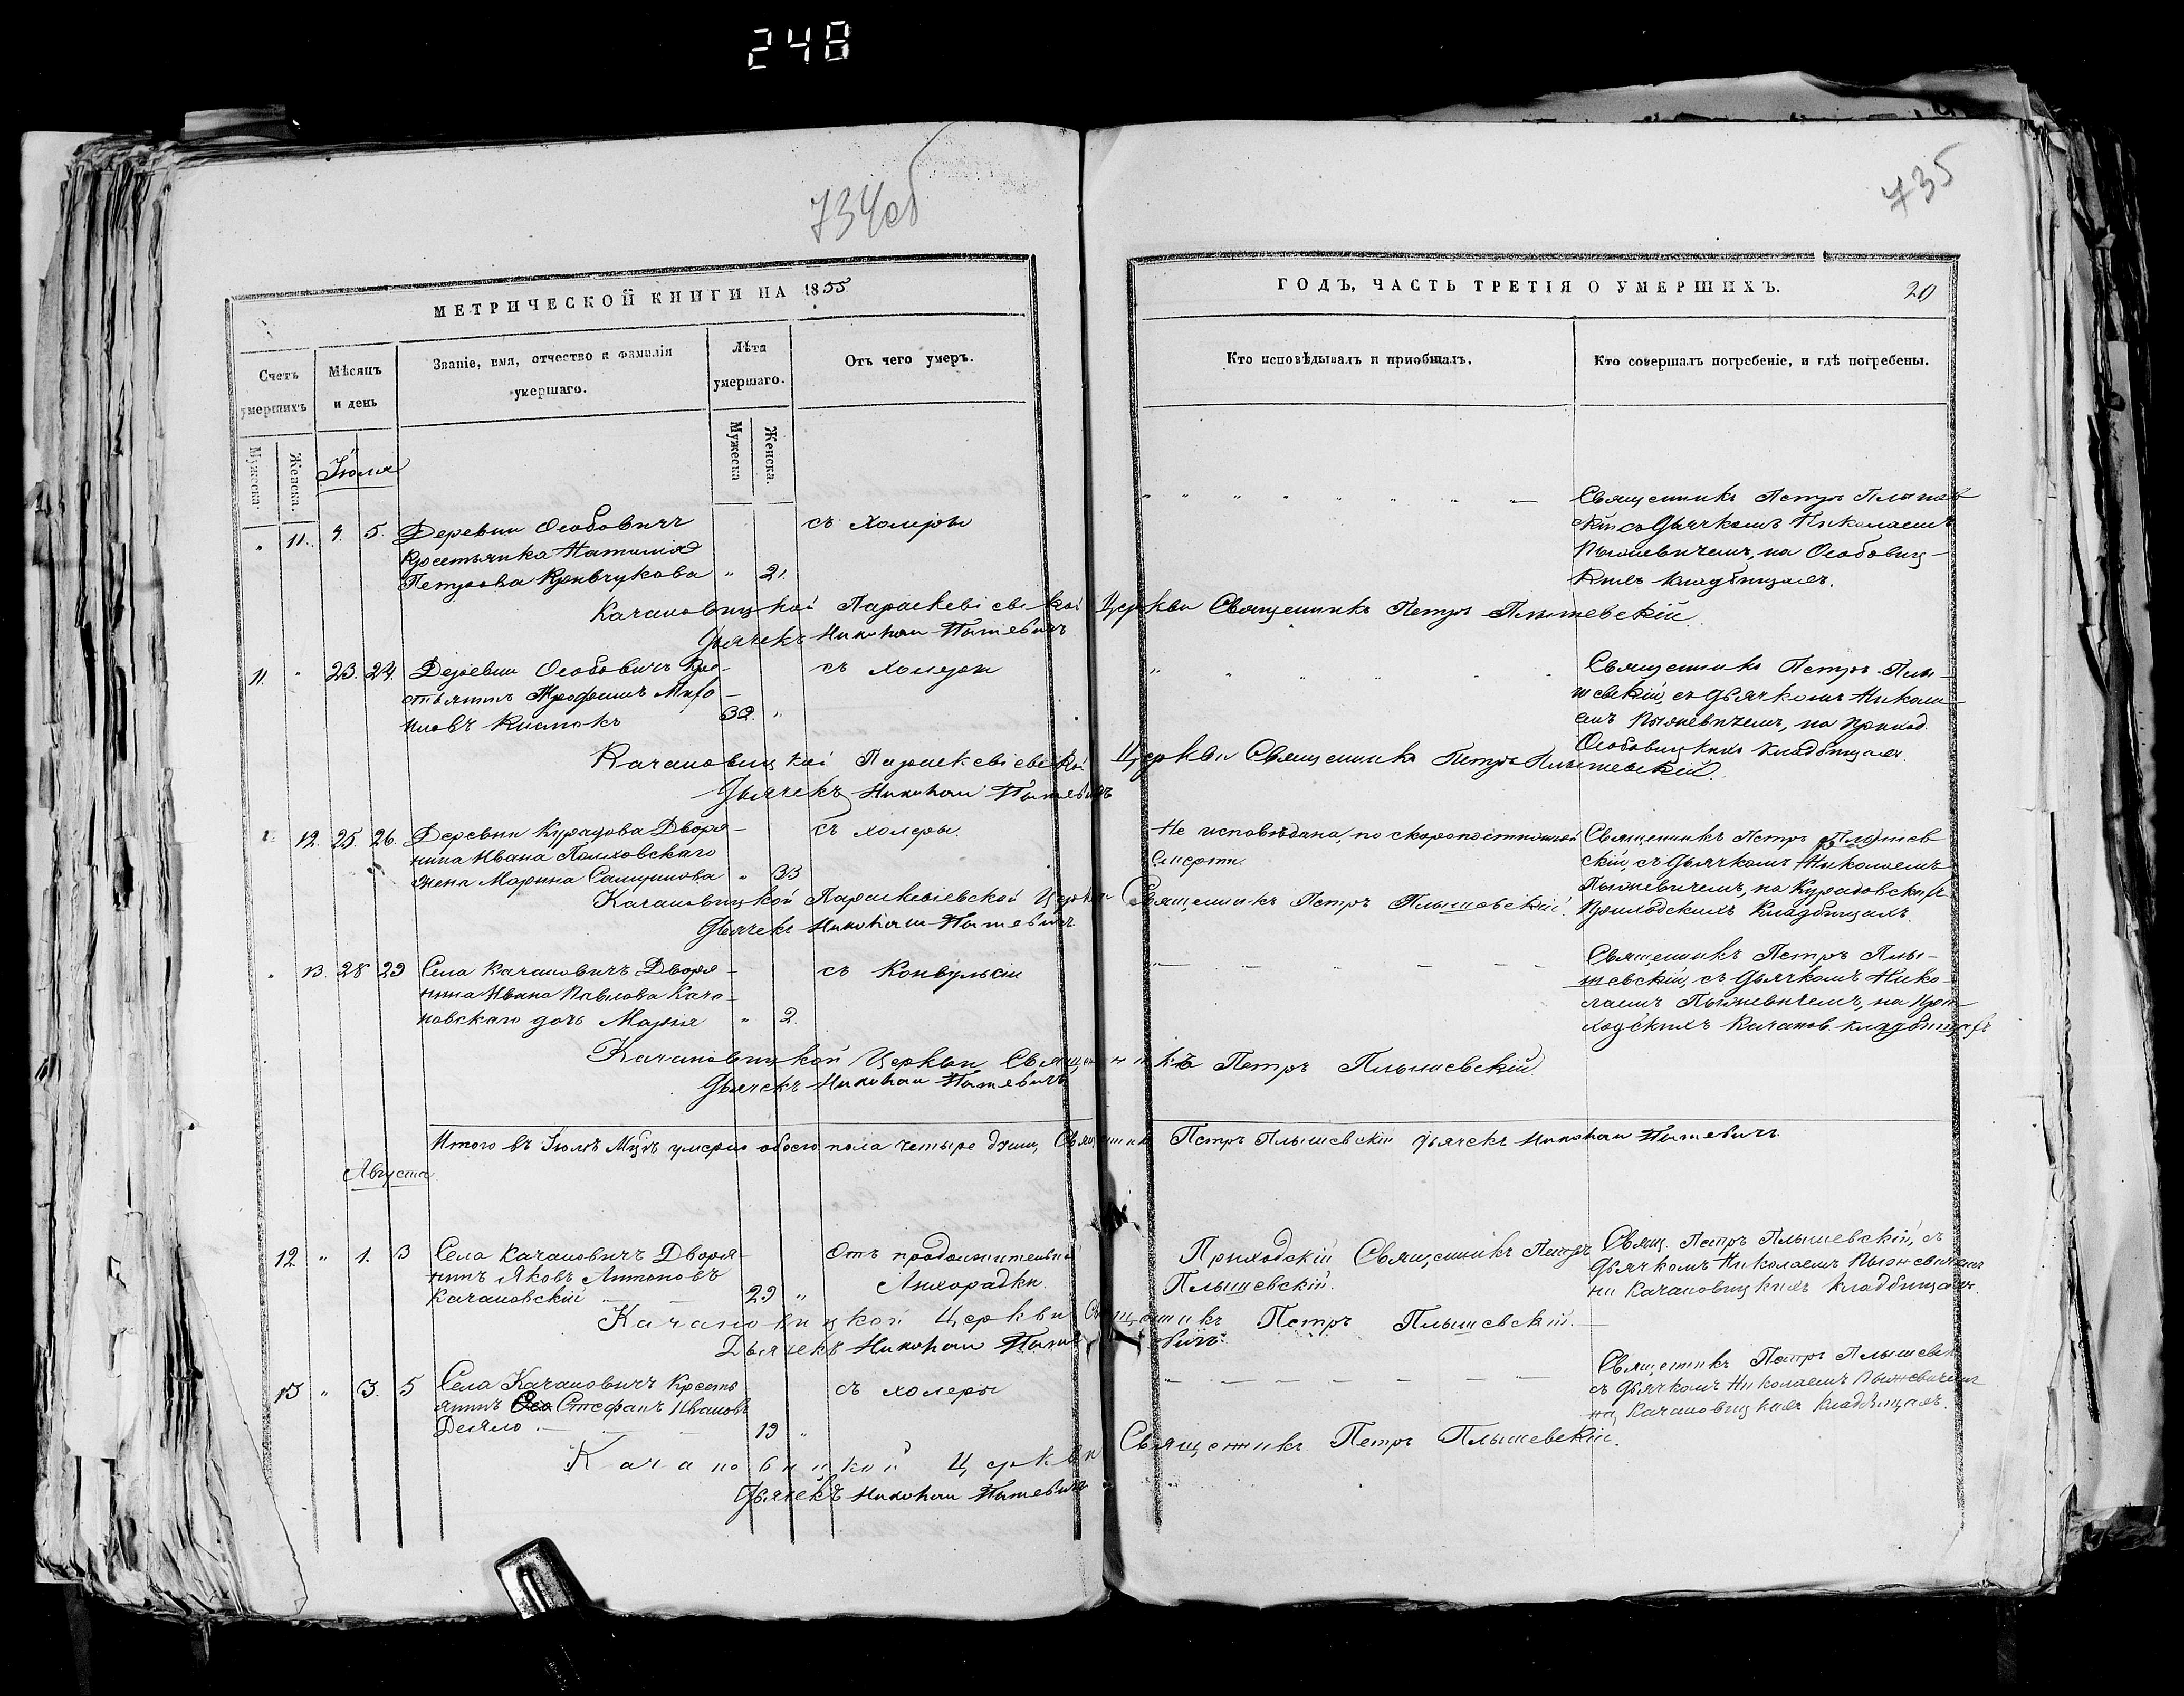 248
734об
735
МЕТРИЧЕСКОЙ КНИГИ НА 1855
ГОДЪ, ЧАСТЬ ТРЕТІЯ О УМЕРШИХЪ.
20
Счетъ умершихъ
Мѣсяцъ и день
Званіе, имя, отчество и фамилія умершаго.
Лѣта умершаго.
Отъ чего умеръ.
Кто исповѣдывалъ и приобщалъ.
Кто совершалъ погребеніе, и гдѣ погребены.
Мужеска
Женска.
Мужеска
Женска.
Іюля
" 11. 5. Деревни Особовичъ
Крестьянка Наталія
Петрова Кривчукова " 21.
съ Холеры
Священникъ Петръ Плышев
скій съ Дьячкомъ Николаемъ
на Особовиц-
кихъ кладбищахъ.
Качановицкой Параскевіевской Церкви Священникъ Петръ Плышевскій
Дьячекъ Николай
11. " 23. 24. Деревни Особовичъ Кре-
стьянинъ Трофимъ Миро-
новъ
съ холеры
Священникъ Петръ Плы-
шевскій, съ дьячкомъ Никола-
емъ на приход.
Особовицкихъ кладбищахъ.
Качановицкой Параскевіевской Церкви Священникъ Петръ Плышевскій
Дьячекъ Николай
12. 25. 26. Деревни Курадова Дворя-
нина Ивана
жена Марина " 33
съ холеры.
Не исповѣдана, по скоропостижной
смерти.
Священникъ Петръ Плышев
скій, съ Дьячкомъ Николаемъ
на Курадовскихъ
Приходскихъ Кладбищахъ.
Качановицкой Параскевіевской Церкви Священникъ Петръ Плышевскій
Дьячекъ Николай
" 13. 28 29 Села Качановичъ Дворя-
нина Ивана Павлова Кача-
новскаго дочь Марія " 2.
съ Конвульсіи
Священникъ Петръ Плы-
шевскій, съ Дьячкомъ Нико-
лаемъ на при-
ходскихъ Качанов. кладбищахъ
Качановицкой Церкви Священникъ Петръ Плышевскій
Дьячекъ Николай
Итого въ Іюлѣ Мцѣ умерло обоего пола четыре души, Священникъ Петръ Плышевскій Дьячекъ Николай
Августа
12. " 1. 3 Села Качановичъ Дворя-
нинъ Яковъ Антоновъ
Качановскій 29 "
Отъ продолжительной
Лихорадки.
Приходскій Священникъ Петръ
Плышевскій.
Свящ. Петръ Плышевскій, съ
Дьячкомъ Николаемъ
на Качановицкихъ кладбищахъ.
Качановицкой Церкви Священникъ Петръ Плышевскій.
Дьячекъ Николай
13 " 3. 5 Села Качановичъ Кресть
янинъ Стефанъ Ивановъ
19 "
съ холеры
Священникъ Петръ Плышевск
съ Дьячкомъ Николаемъ
на Качановицкихъ Кладбищахъ.
Качановицкой Церкви Священникъ Петръ Плышевскій.
Дьячекъ Николай